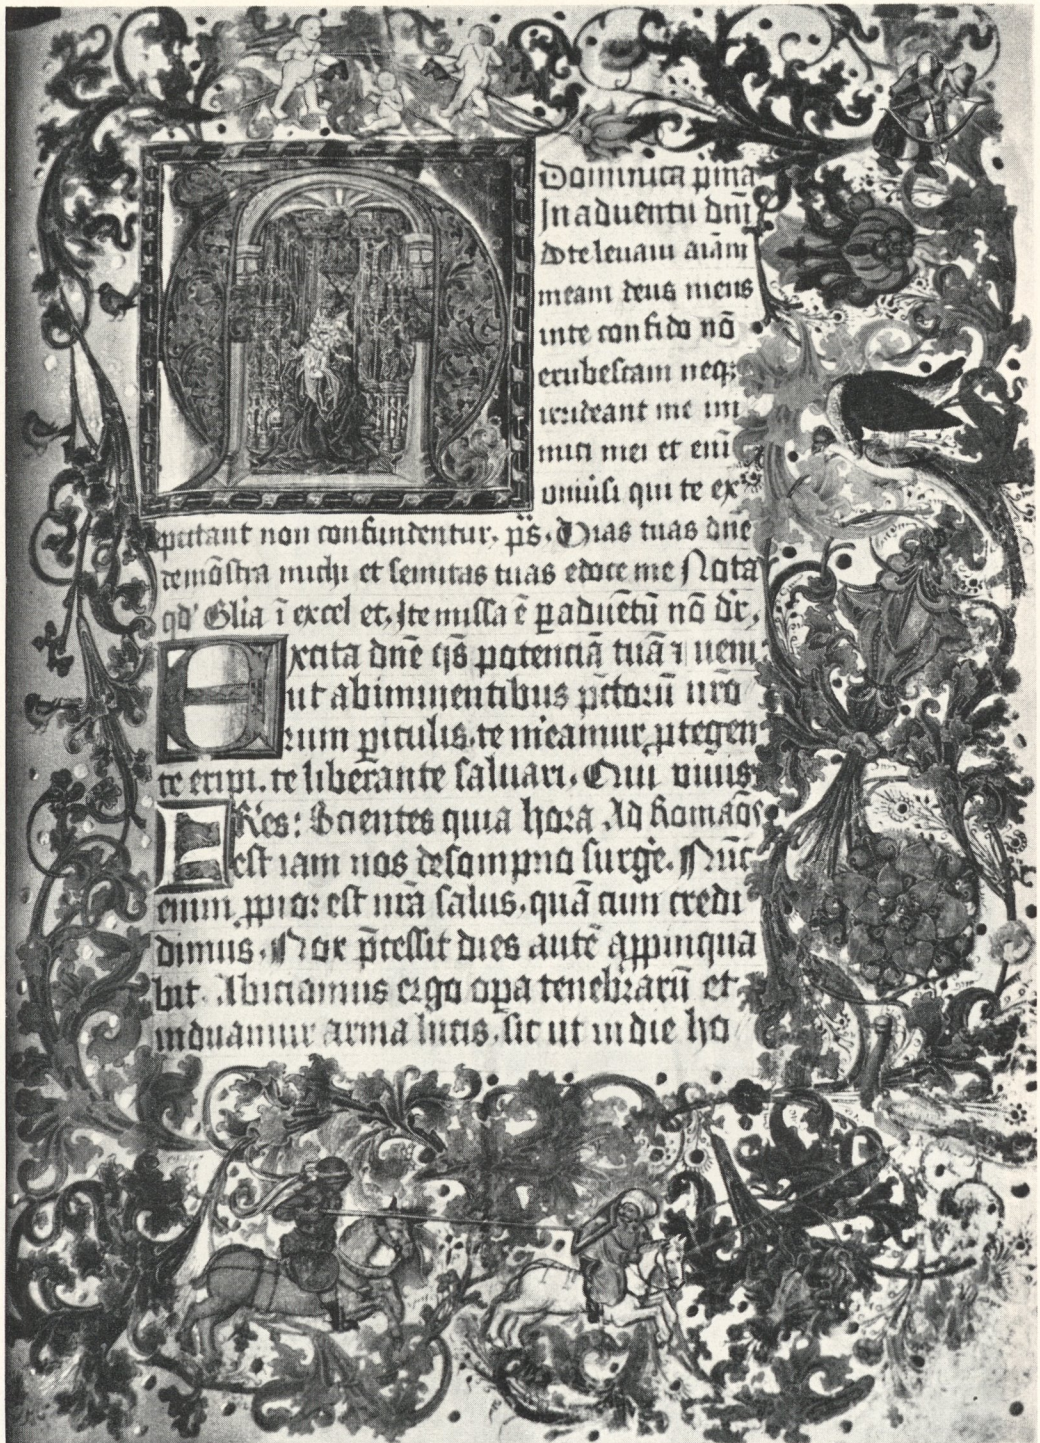 Dominica p̄ma
In aduentu dn̄i
Ad te leuaui aīam
meam deus meus
in te confido nō
erubescam neqꝫ
irrideant me ini
mici mei et eni
uniūsi qui te ex
pectant non confundentur. p̄s. Vias tuas dn̄e
demōstra michi et semitas tuas edoce me Nota
qd' Gl̄ia ī excel et. Ite missa ē ꝑ aduētū nō dr̄,
Excita dn̄e q̄s potenciā tuā ⁊ ueni
ut ab iminentibus pc̄torū nr̄o
rum ꝑiculis. te m̄eamur ꝓtegen
te eripi. te liberante saluari. Qui uiuis
Fr̄es: Scientes quia hora Ad Romaōs
est iam nos de sompno surḡe. Nūc
enim ꝓpior est nr̄a salus. quā cum credi
dimus. Nox p̄cessit dies autē appinqua
bit. Abiciamus ergo opa tenebrarū et
induamur arma lucis. sic ut in die ho